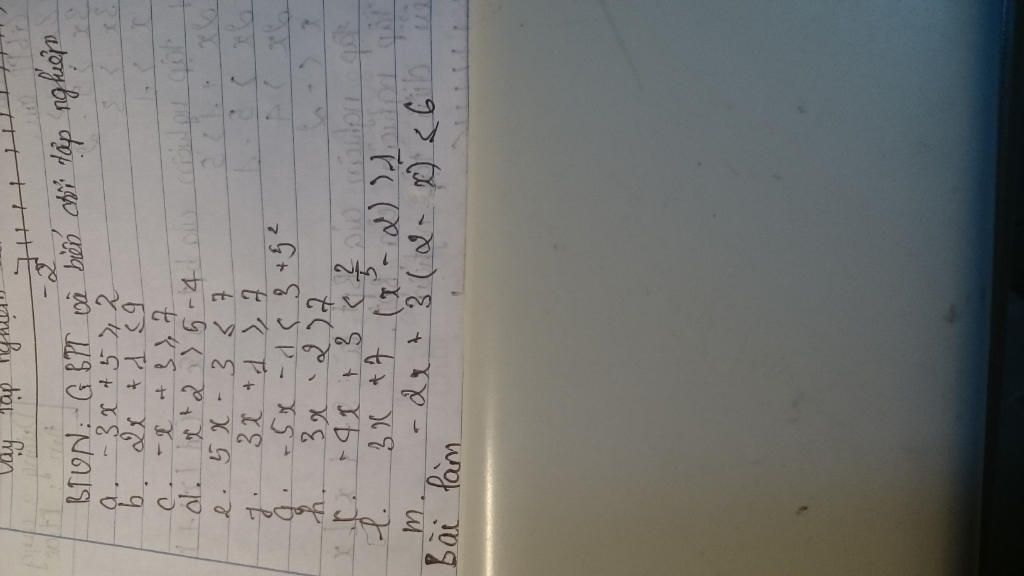 Vậy tập nghiệm
-2
BTVN: GBPT và biểu diễn tập nghiệm
a. -3x + 5 ≥ 2
b. 2x + 1 ≤ 9
c. -x + 3 ≥ 7
d. x + 2 > 5 - 4
e. 5x - 3 ≤ 7
f. 3x + 1 ≥ 7
g. -5x - 1 < 3 + 5²
h. 3x - 2 > 7
k. -4x + 3 < 2/3
l. 3x + 7 (x - 2) > 1
m. -2x + 3 (2 - x) < 6
Bài làm